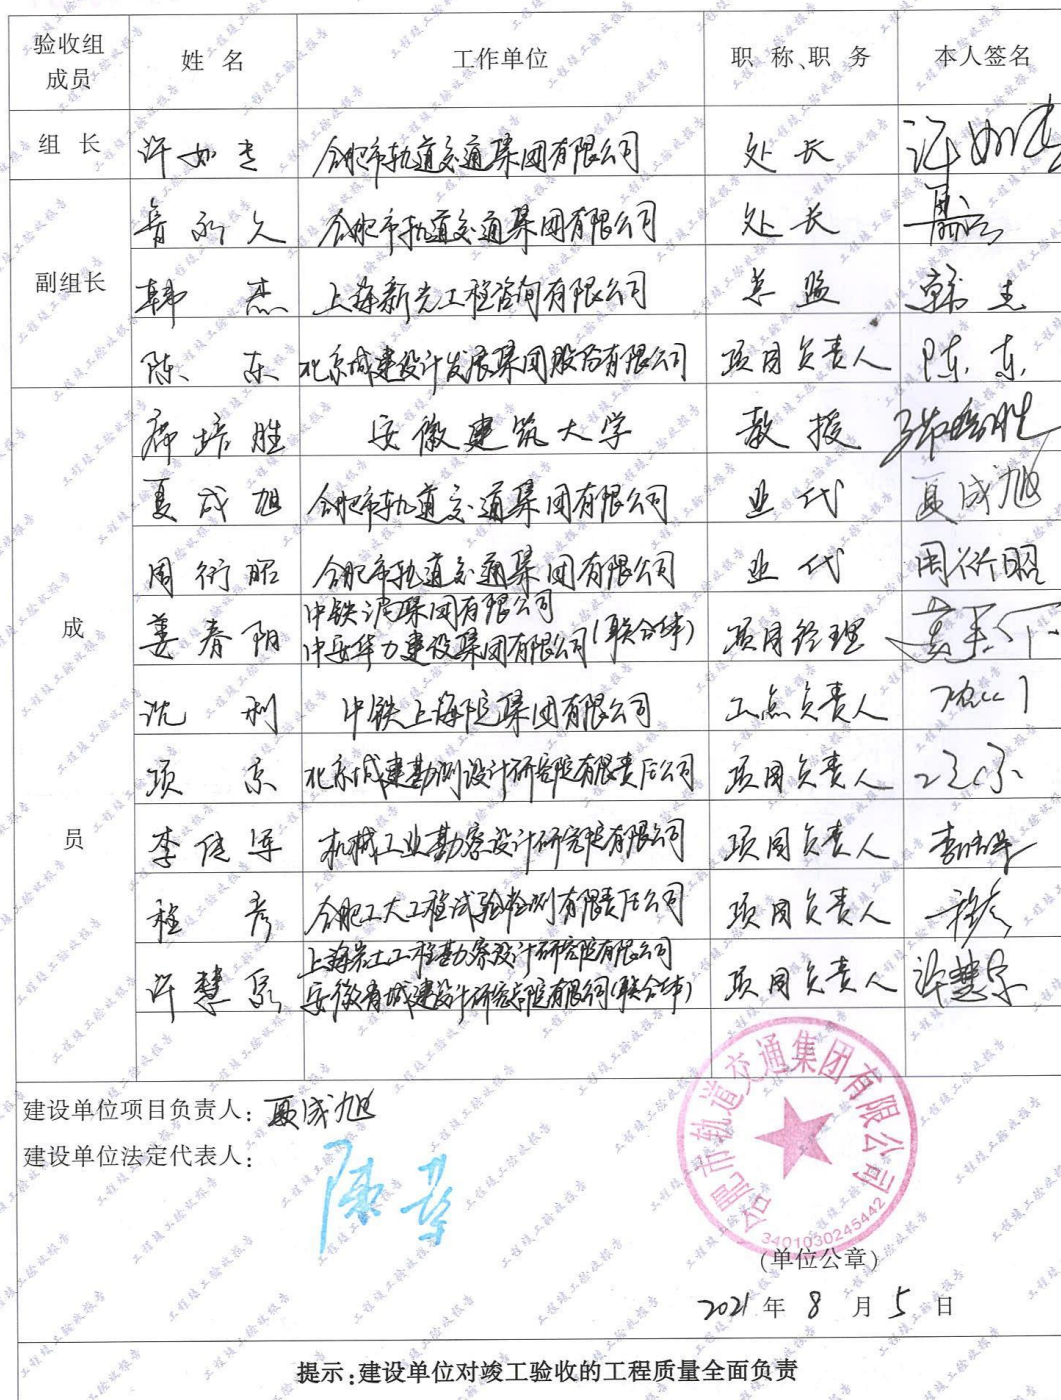 验收组成员 姓 名 工作单位 职 称、职 务 本人签名
组 长 许如志 合肥市轨道交通集团有限公司 处长
副组长
鲁永久 合肥市轨道交通集团有限公司 处长
韩杰 上海新光工程咨询有限公司 总监 韩杰
陈东 北京城建设计发展集团股份有限公司 项目负责人 陈东
成员
培胜 安徽建筑大学 教授
夏成旭 合肥市轨道交通集团有限公司 业代 夏成旭
周衍昭 合肥市轨道交通集团有限公司 业代 周衍昭
姜春阳 中铁 集团有限公司
中安华力建设集团有限公司(联合体) 项目经理
沈利 中铁上海院集团有限公司 工点负责人
项京 北京城建勘测设计研究院有限责任公司 项目负责人
李信军 机械工业勘察设计研究院有限公司 项目负责人
程彦 合肥工大工程试验检测有限责任公司 项目负责人 程彦
许慧 上海岩土工程勘察设计研究院有限公司
安徽省城建设计研究总院有限公司(联合体) 项目负责人 许慧
建设单位项目负责人: 夏成旭
建设单位法定代表人:
合肥市轨道交通集团有限公司
3401030245442
(单位公章)
2021 年 8 月 5 日
提示:建设单位对竣工验收的工程质量全面负责
工程竣工验收报告